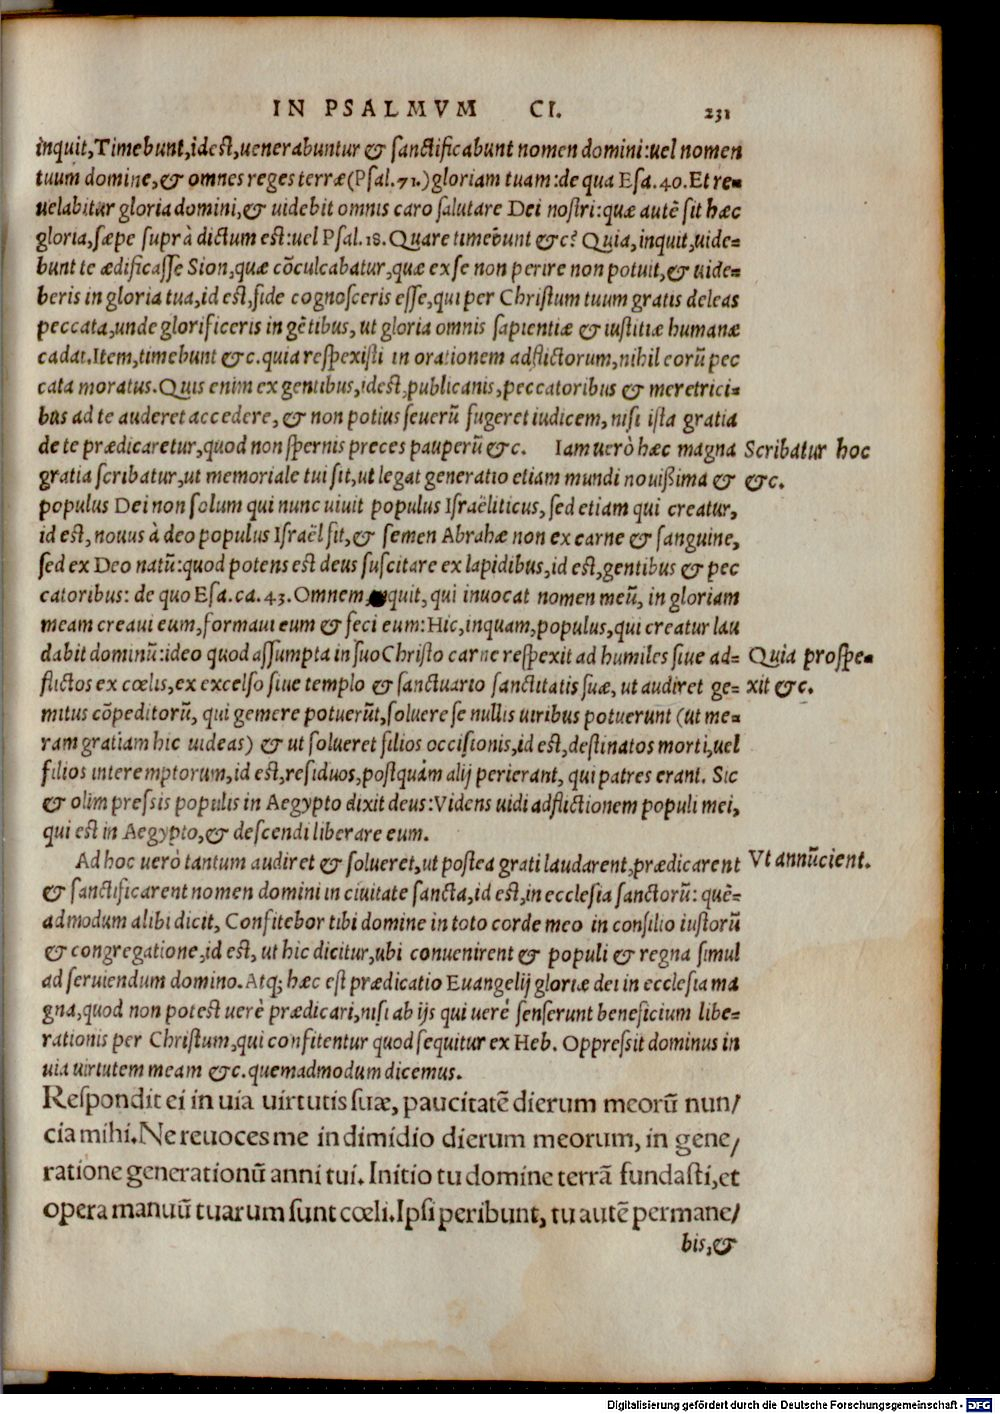 IN PSALMVM CI. 231
inquit, Timebunt, id est, uenerabuntur & sanctificabunt nomen domini: uel nomen
tuum domine, & omnes reges terræ (Psal. 71.) gloriam tuam: de qua Esa. 40. Et re-
uelabitur gloria domini, & uidebit omnis caro salutare Dei nostri: quæ autē sit hæc
gloria, sæpe suprà dictum est: uel Psal. 18. Quare timebunt &c? Quia, inquit, uide-
bunt te ædificasse Sion, quæ cōculcabatur, quæ ex se non perire non potuit, & uide-
beris in gloria tua, id est, fide cognosceris esse, qui per Christum tuum gratis deleas
peccata, unde glorificeris in gētibus, ut gloria omnis sapientiæ & iustitiæ humanæ
cadat. Item, timebunt &c. quia respexisti in orationem adflictorum, nihil eorū pec
cata moratus. Quis enim ex gentibus, id est, publicanis, peccatoribus & meretrici-
bus ad te auderet accedere, & non potius seuerū fugeret iudicem, nisi ista gratia
de te prædicaretur, quod non spernis preces pauperū &c. Iam uerò hæc magna Scribatur hoc
gratia scribatur, ut memoriale tui sit, ut legat generatio etiam mundi nouißima & &c.
populus Dei non solum qui nunc uiuit populus Israëliticus, sed etiam qui creatur,
id est, nouus à deo populus Israël sit, & semen Abrahæ non ex carne & sanguine,
sed ex Deo natū: quod potens est deus suscitare ex lapidibus, id est, gentibus & pec
catoribus: de quo Esa. ca. 43. Omnem quit, qui inuocat nomen meū, in gloriam
meam creaui eum, formaui eum & feci eum: Hic, inquam, populus, qui creatur lau
dabit dominū: ideo quod assumpta in suo Christo carne respexit ad humiles siue ad- Quia prospe-
flictos ex cœlis, ex excelso siue templo & sanctuario sanctitatis suæ, ut audiret ge- xit &c.
mitus cōpeditorū, qui gemere potuerūt, soluere se nullis uiribus potuerunt (ut me-
ram gratiam hic uideas) & ut solueret filios occisionis, id est, destinatos morti, uel
filios interemptorum, id est, residuos, postquàm alij perierant, qui patres erant. Sic
& olim pressis populis in Aegypto dixit deus: Videns uidi adflictionem populi mei,
qui est in Aegypto, & descendi liberare eum.
Ad hoc uerò tantum audiret & solueret, ut postea grati laudarent, prædicarent Vt annūcient.
& sanctificarent nomen domini in ciuitate sancta, id est, in ecclesia sanctorū: quē-
admodum alibi dicit, Confitebor tibi domine in toto corde meo in consilio iustorū
& congregatione, id est, ut hic dicitur, ubi conuenirent & populi & regna simul
ad seruiendum domino. Atq; hæc est prædicatio Euangelij gloriæ dei in ecclesia ma
gna, quod non potest uerè prædicari, nisi ab ijs qui uerè senserunt beneficium libe-
rationis per Christum, qui confitentur quod sequitur ex Heb. Oppressit dominus in
uia uirtutem meam &c. quemadmodum dicemus.
Respondit ei in uia uirtutis suæ, paucitatē dierum meorū nun/
cia mihi. Ne reuoces me in dimidio dierum meorum, in gene/
ratione generationū anni tui. Initio tu domine terrā fundasti, et
opera manuū tuarum sunt cœli. Ipsi peribunt, tu autē permane/
bis, &
Digitalisierung gefördert durch die Deutsche Forschungsgemeinschaft - DFG